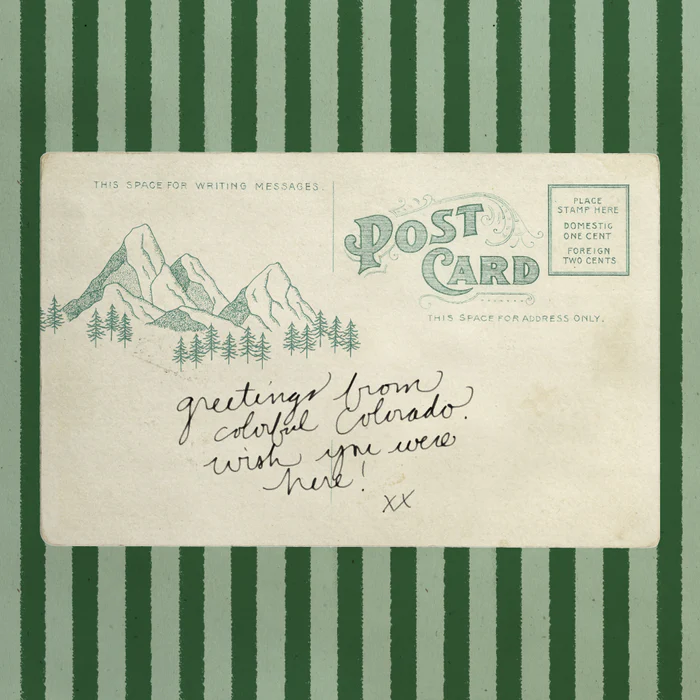 THIS SPACE FOR WRITING MESSAGES.
POST
CARD
PLACE
STAMP HERE
DOMESTIC
ONE CENT
FOREIGN
TWO CENTS
THIS SPACE FOR ADDRESS ONLY.
greetings from
colorful Colorado.
wish you were
here!
XX